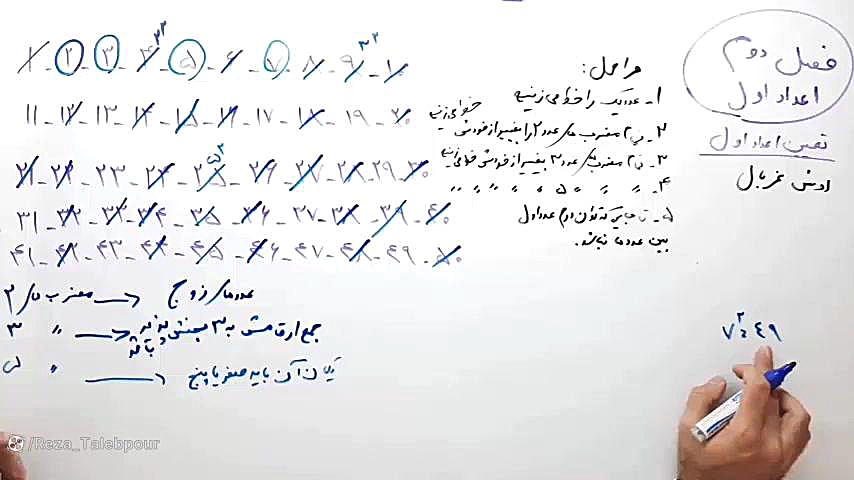 فصل دوم
اعداد اول
تعیین اعداد اول
روش غربال
مراحل:
۱ـ عدد یک را خط می زنیم
۲ـ مضرب های عدد ۲ را بغیر از خودش خط می زنیم
۳ـ مضرب های عدد ۳ بغیر از خودش خط می زنیم
۴ـ " " " ۵ " " " "
۵ـ تا جایی که توان دوم عدد اول
بین عددها نباشد.
۱ - ۲ - ۳ - ۴ ۲² - ۵ - ۶ - ۷ - ۸ - ۹ ۳² - ۱۰
۱۱ - ۱۲ - ۱۳ - ۱۴ - ۱۵ - ۱۶ - ۱۷ - ۱۸ - ۱۹ - ۲۰
۲۱ - ۲۲ - ۲۳ - ۲۴ - ۲۵ ۵² - ۲۶ - ۲۷ - ۲۸ - ۲۹ - ۳۰
۳۱ - ۳۲ - ۳۳ - ۳۴ - ۳۵ - ۳۶ - ۳۷ - ۳۸ - ۳۹ - ۴۰
۴۱ - ۴۲ - ۴۳ - ۴۴ - ۴۵ - ۴۶ - ۴۷ - ۴۸ - ۴۹ - ۵۰
مضرب های ۲ → عددهای زوج
۳ " → جمع ارقامش به ۳ بخش پذیر باشد
۵ " → یکان آن باید صفر یا پنج
۷² = ۴۹
/Reza_Talebpour